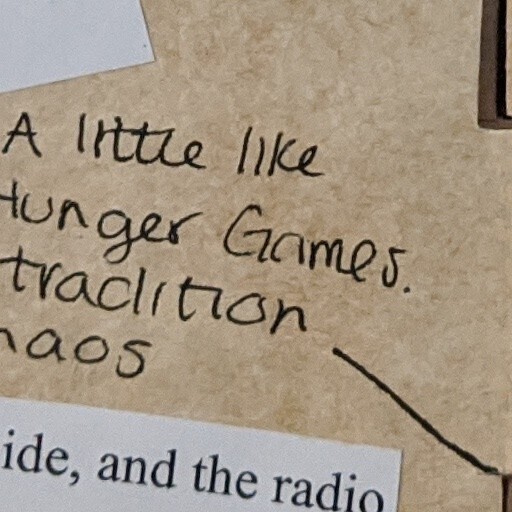 A little like
Hunger Games.
tradition
haos
ide, and the radio